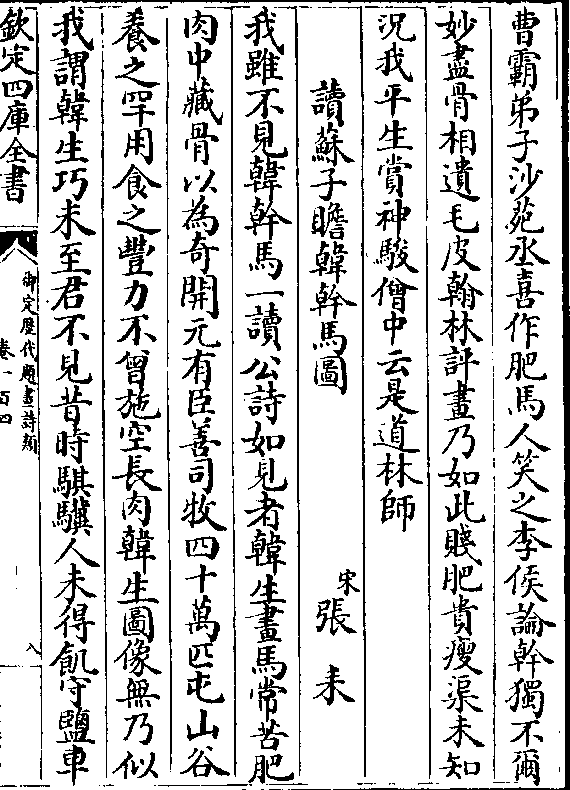 曹霸弟子沙苑丞喜作肥馬人笑之李侯論幹獨不爾
妙畫骨相遺毛皮翰林評畫乃如此賤肥貴瘦渠未知
況我平生賞神駿僧中云是道林師
讀蘇子瞻韓幹馬圖
宋張耒
我雖不見韓幹馬一讀公詩如見者韓生畫馬常苦肥
肉中藏骨以為奇開元有臣善司牧四十萬匹屯山谷
養之罕用食之豐力不曾施空長肉韓生圖像無乃似
我謂韓生巧未至君不見昔時騏驥人未得飢守鹽車
欽定四庫全書
御定歴代題畫詩類
卷一百四
八